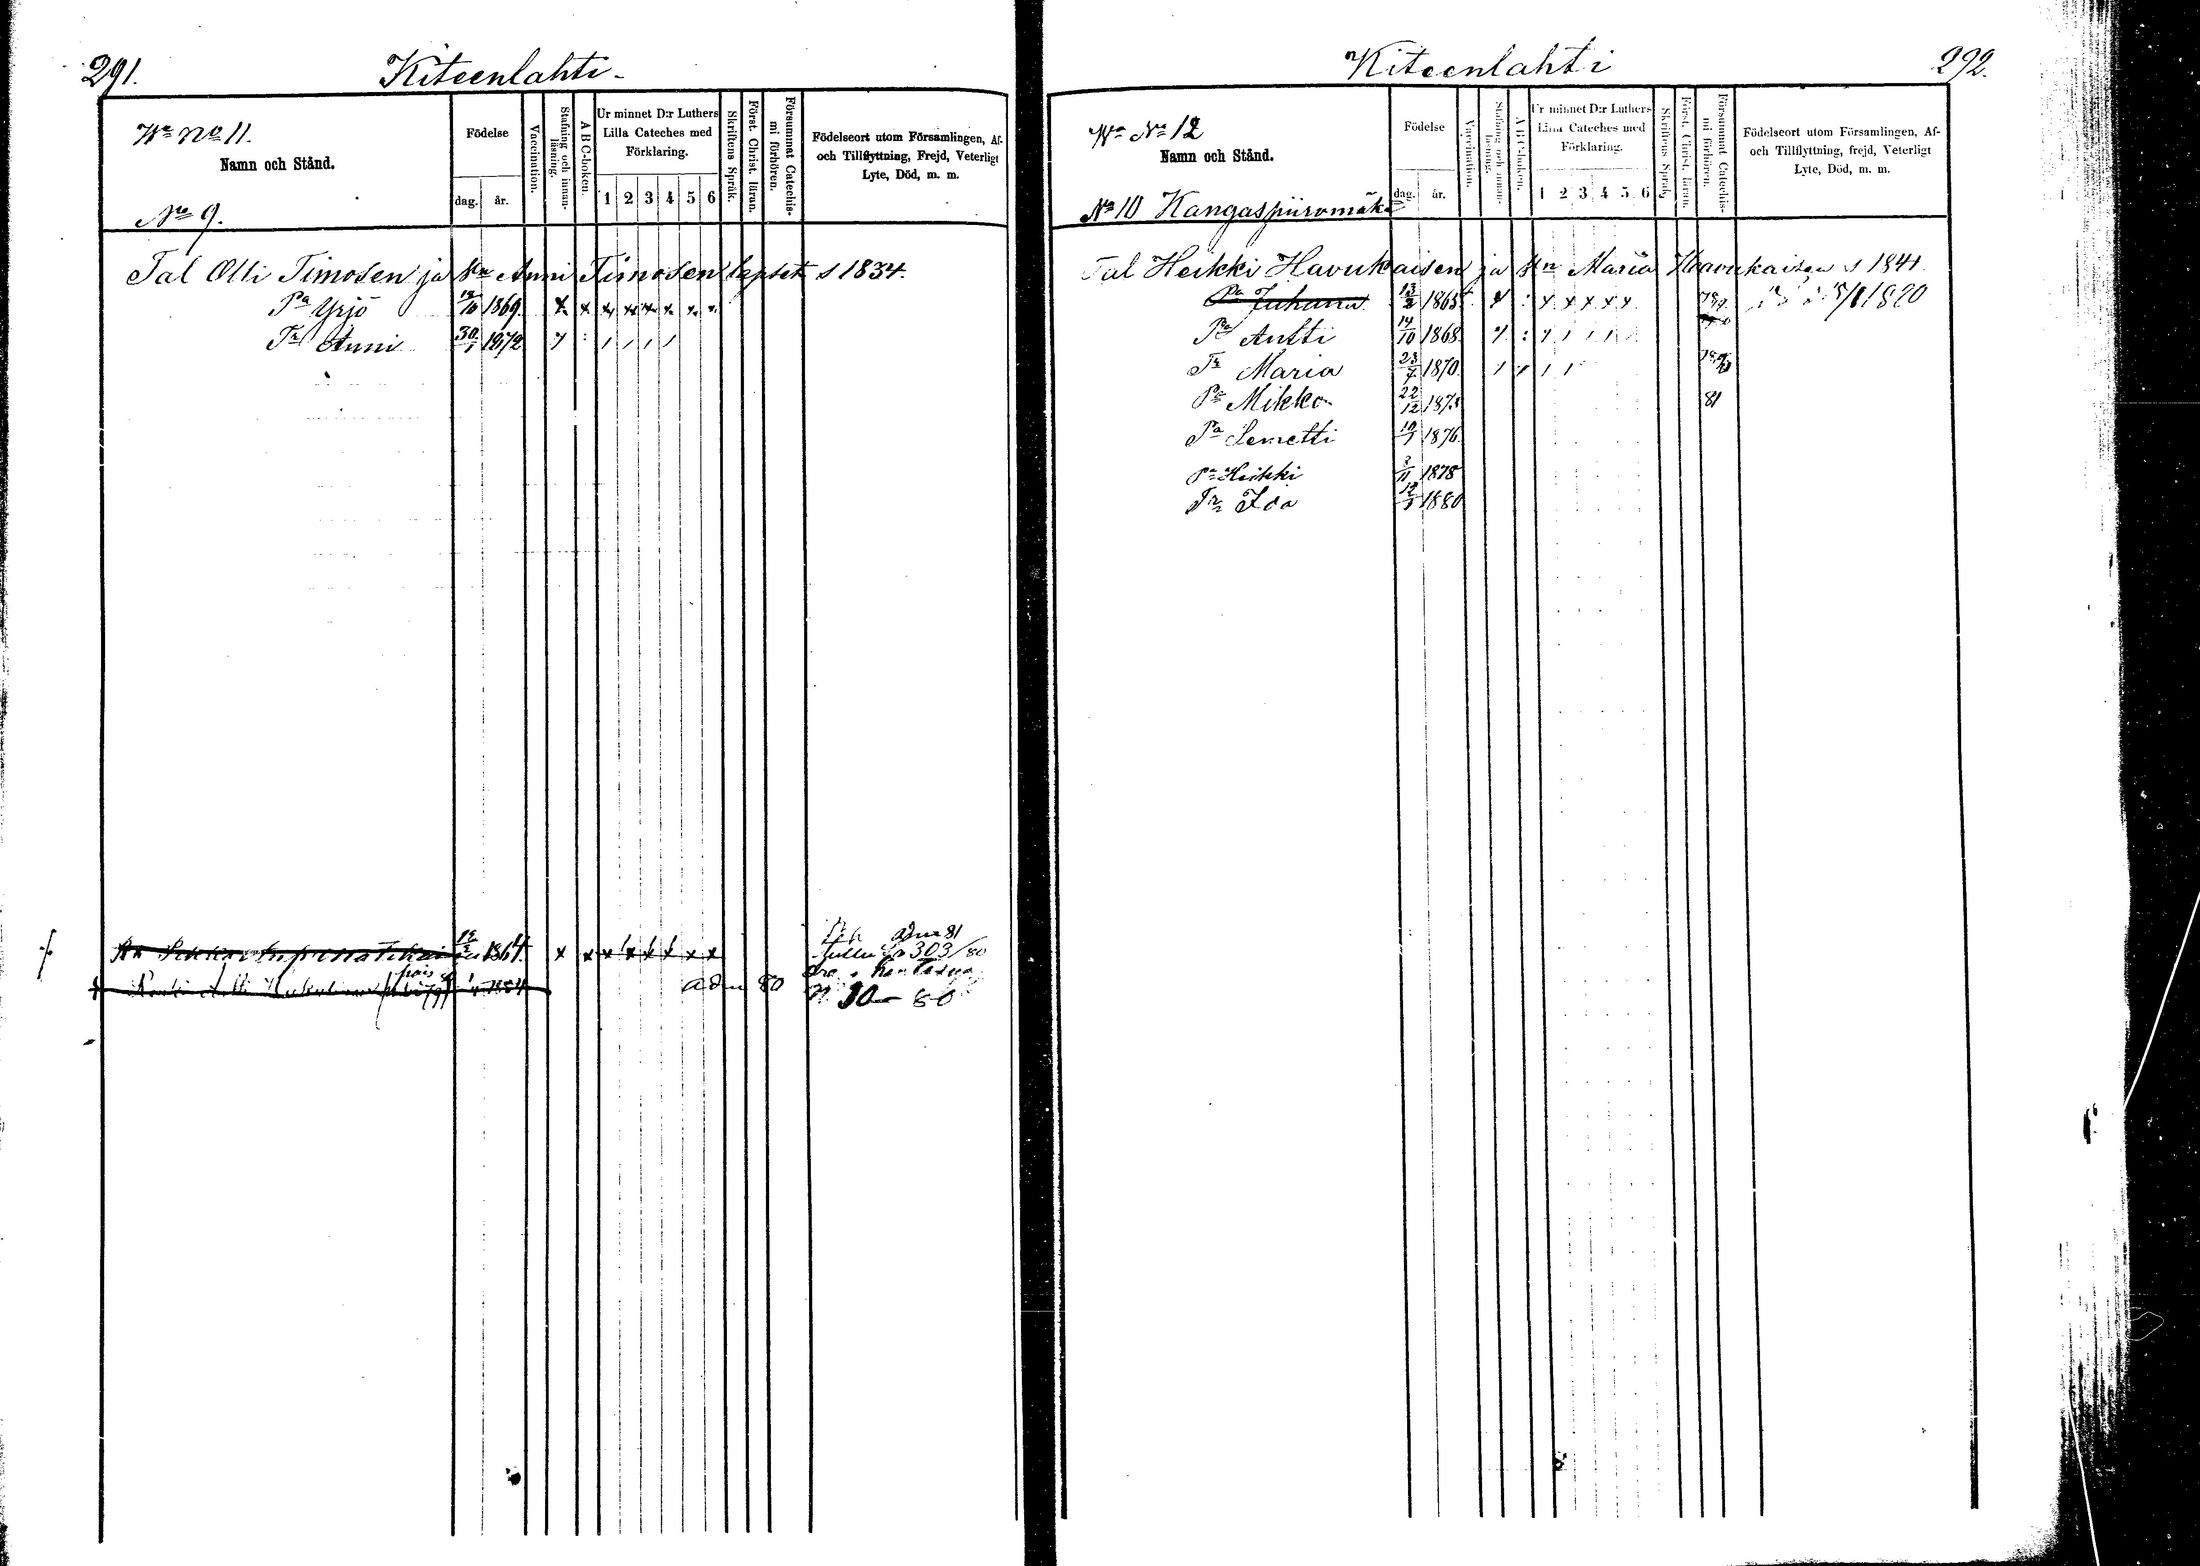 291.
Kiteenlahti
Wn No 11.
Namn och Stånd.
No 9.
Födelse
dag. år.
Vaccination.
Stafning och innan-
läsning.
A B C-boken.
Ur minnet D:r Luthers
Lilla Cateches med
Förklaring.
1 2 3 4 5 6
Skriftens Språk.
Först. Christ. läran.
Försummat Catechis-
mi förhören.
Födelseort utom Församlingen, Af-
och Tillflyttning, Frejd, Veterligt
Lyte, Död, m. m.
Tal Olli Timosen ja Vn Anni Timosen lapset s 1834.
Pa Yrjö 12/10 1869. x x x x x x x x
Tr Anni 30/1 1872
1864. x x x x x x x x
adm 81
303/80
adm 80
N 30 – 80
Kiteenlahti
292.
Wn No 12
Namn och Stånd.
No 10 Kangaspuromäki
Födelse
dag. år.
Vaccination.
Stafning och innan-
läsning.
A B C-boken.
Ur minnet D:r Luthers
Lilla Cateches med
Förklaring.
1 2 3 4 5 6
Skriftens Språk.
Först. Christ. läran.
Försummat Catechis-
mi förhören.
Födelseort utom Församlingen, Af-
och Tillflyttning, frejd, Veterligt
Lyte, Död, m. m.
Tal Heikki Havukaisen ja Vn Maria Haavukaisen s 1841.
Pa Juhana 13/2 1865 x x x x x 1880
Pa Antti 14/10 1868
Tr Maria 23/7 1870
Pa Mikko 22/12 187 81
Pa Semetti 19/1 1876
Pa Heikki 3/11 1878
Tr Ida 12/9 1880